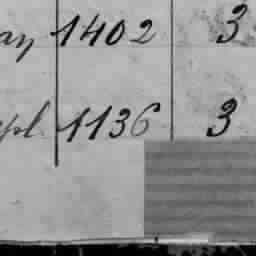 ay 1402 3
pl 1136 3